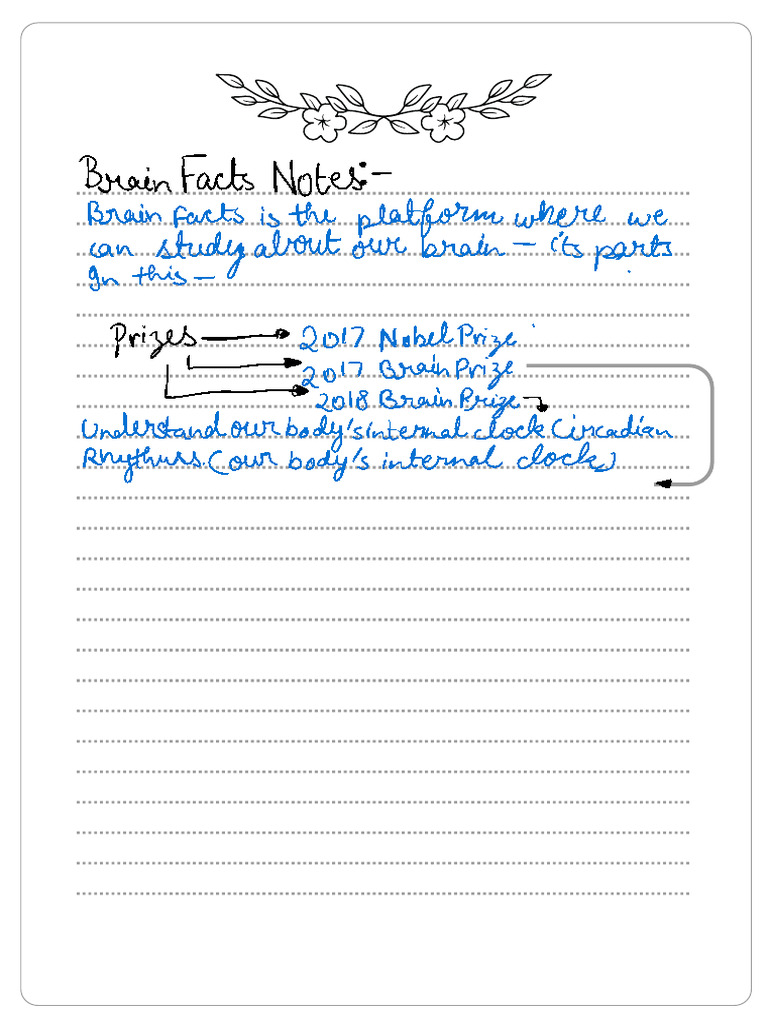 Brain Facts Notes:-
Brain Facts is the platform where we
can study about our brain - its parts
In this -
Prizes → 2017 Nobel Prize
2017 Brain Prize
2018 Brain Prize
Understand our body's internal clock Circadian
Rhythms. (our body's internal clock)